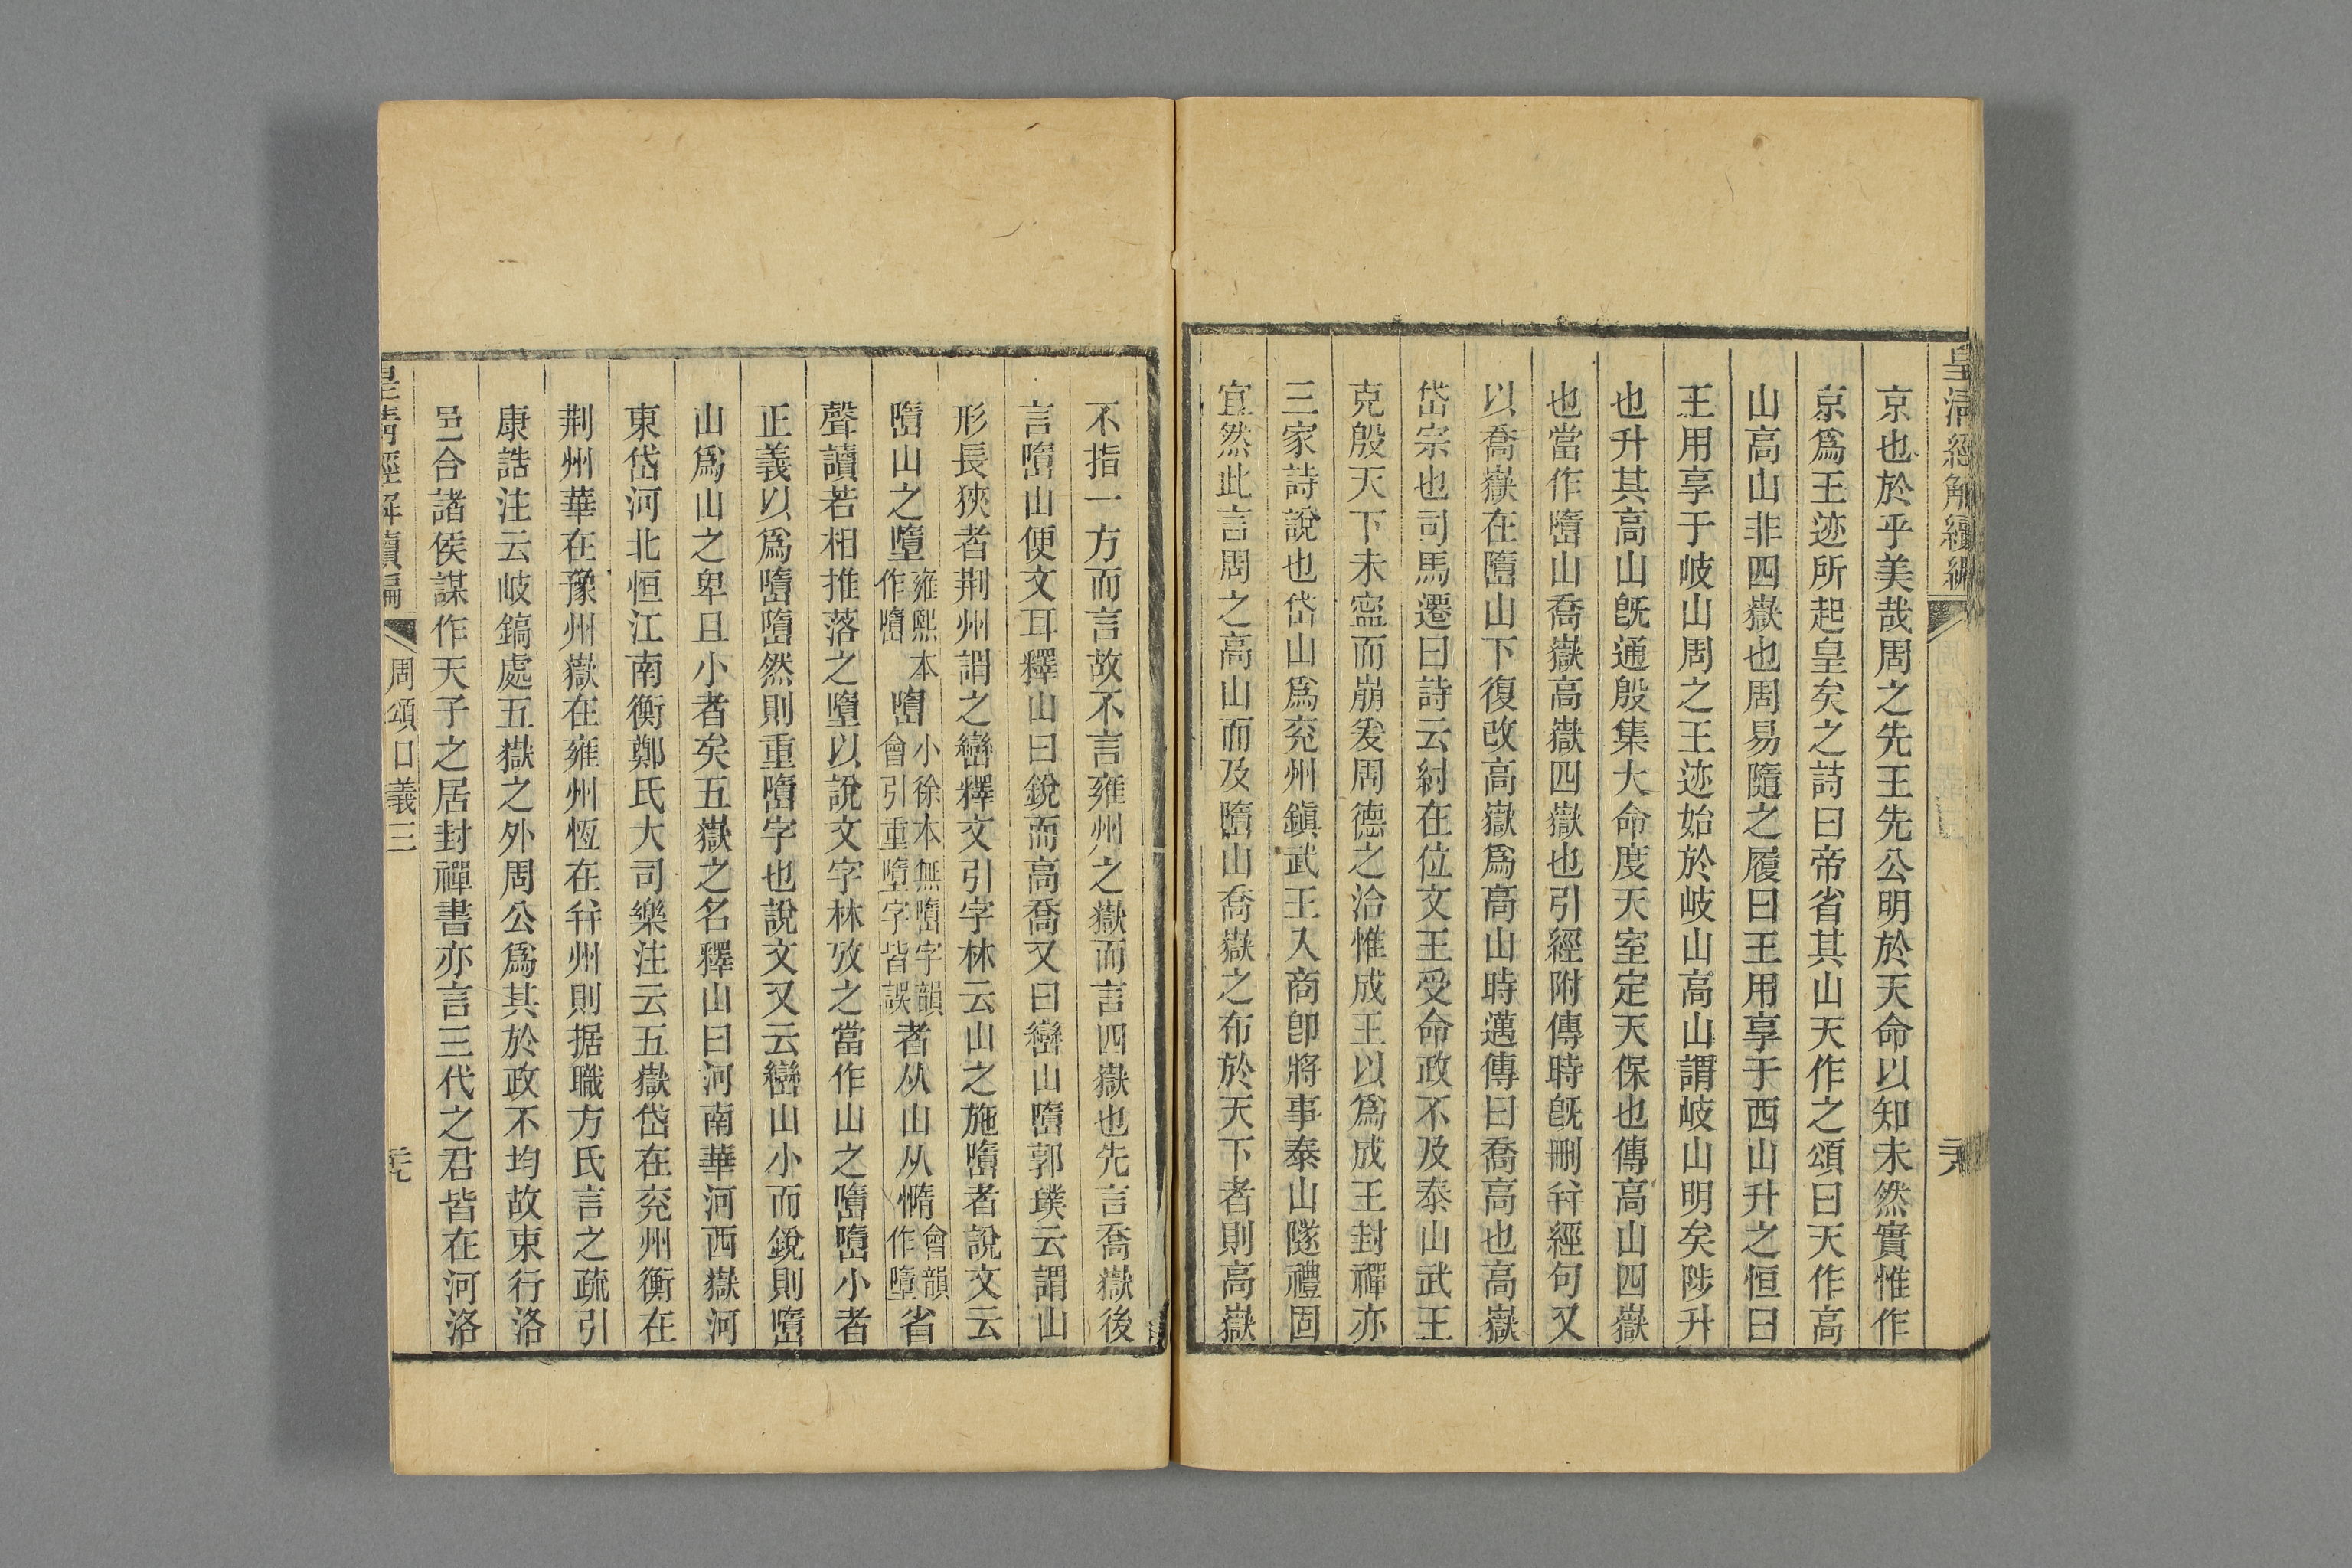 皇清經解續編
京也於乎美哉周之先王先公明於天命以知未然實惟作
京爲王迹所起皇矣之詩曰帝省其山天作之頌曰天作高
山高山非四嶽也周易隨之履曰王用享于西山升之恒曰
王用享于岐山周之王迹始於岐山高山謂岐山明矣陟升
也升其高山旣通殷集大命度天室定天保也傳高山四嶽
也當作嶞山喬嶽高嶽四嶽也引經附傳時旣刪幷經句又
以喬嶽在嶞山下復改高嶽爲高山時邁傳曰喬高也高嶽
岱宗也司馬遷曰詩云紂在位文王受命政不及泰山武王
克殷天下未寍而崩爰周德之洽惟成王以爲成王封禪亦
三家詩說也岱山爲兖州鎭武王入商卽將事泰山隧禮固
宜然此言周之高山而及嶞山喬嶽之布於天下者則高嶽
不指一方而言故不言雍州之嶽而言四嶽也先言喬嶽後
言嶞山便文耳釋山曰銳而高喬又曰巒山嶞郭璞云謂山
形長狹者荆州謂之巒釋文引字林云山之施嶞者說文云
嶞山之墮雍熙本作嶞嶞小徐本無嶞字韻會引重墮字皆誤者从山从惰韻會作墮省
聲讀若相推落之墮以說文字林攷之當作山之嶞嶞小者
正義以爲嶞嶞然則重嶞字也說文又云巒山小而銳則嶞
山爲山之卑且小者矣五嶽之名釋山曰河南華河西嶽河
東岱河北恒江南衡鄭氏大司樂注云五嶽岱在兖州衡在
荆州華在豫州嶽在雍州恆在幷州則据職方氏言之疏引
康誥注云岐鎬處五嶽之外周公爲其於政不均故東行洛
邑合諸侯謀作天子之居封禪書亦言三代之君皆在河洛
皇清經解續編 周頌口義三 元